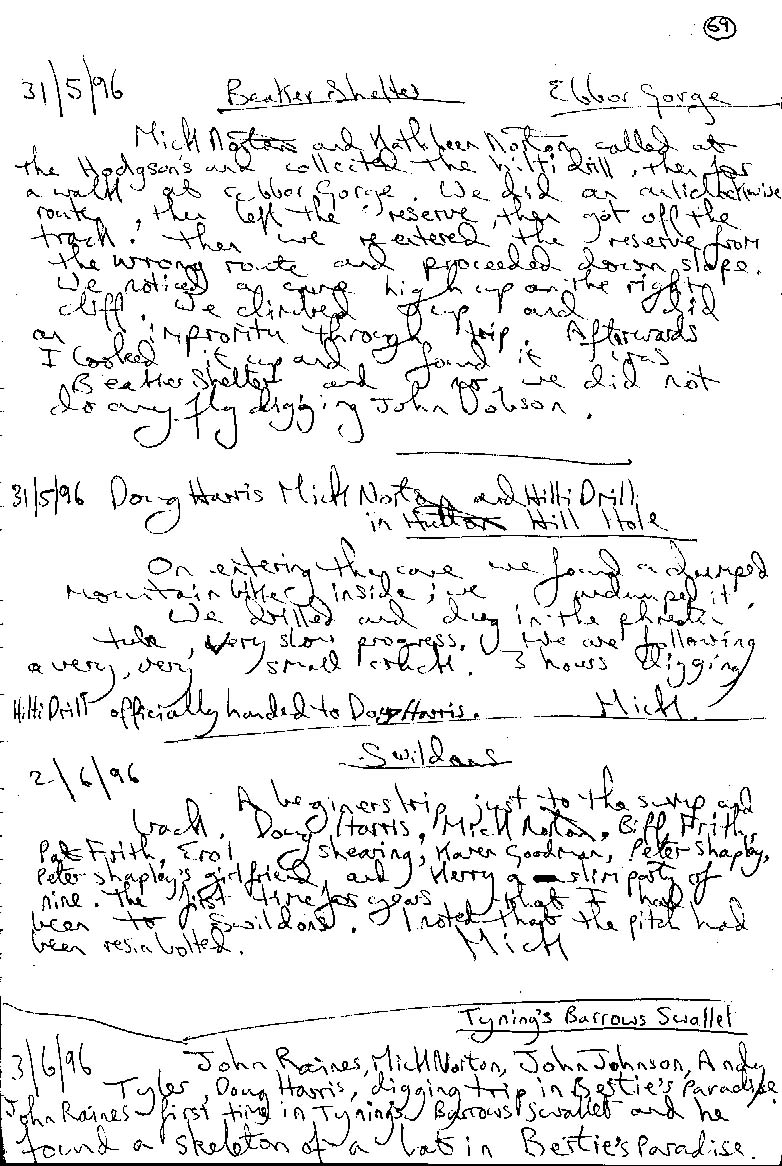 69
31/5/96 Beaker Shelter Ebbor Gorge
Mick Norton and Kathleen Norton called at
the Hodgson's and collected the hilti drill, then for
a walk at Ebbor Gorge. We did an anticlockwise
route, then left the reserve, then got off the
track. Then we reentered the reserve from
the wrong route and proceeded down slope.
We noticed a cave high up on the right
cliff. We climbed up and did
an impromtu through trip. Afterwards
I looked it up and found it was
Beaker Shelter and no, we did not
do any fly digging John Dobson.
31/5/96 Doug Harris Mick Norton and Hilti Drill
in Hutton Hill Hole
On entering the cave we found a dumped
mountain bike inside; we undumped it.
We drilled and dug in the phreatic
tube, very slow progress. We are following
a very, very small crack. 3 hours digging
Hilti Drill officially handed to Doug Harris. Mick.
Swildons
2/6/96
A beginers trip just to the sump and
back. Doug Harris, Mick Norton, Biff Frith,
Pat Frith, Erol Shearing, Karen Goodman, Peter Shapley,
Peter Shapley's girlfriend, and Kerry a slim party of
nine. The first time for years that I had
been to Swildons. I noted that the pitch had
been resin bolted. Mick
Tyning's Barrows Swallet
3/6/96 John Raines, Mick Norton, John Johnson, Andy
Tyler, Doug Harris, digging trip in Bestie's Paradise.
John Raines first time in Tyning's Barrows Swallet and he
found a skeleton of a bat in Bestie's Paradise.